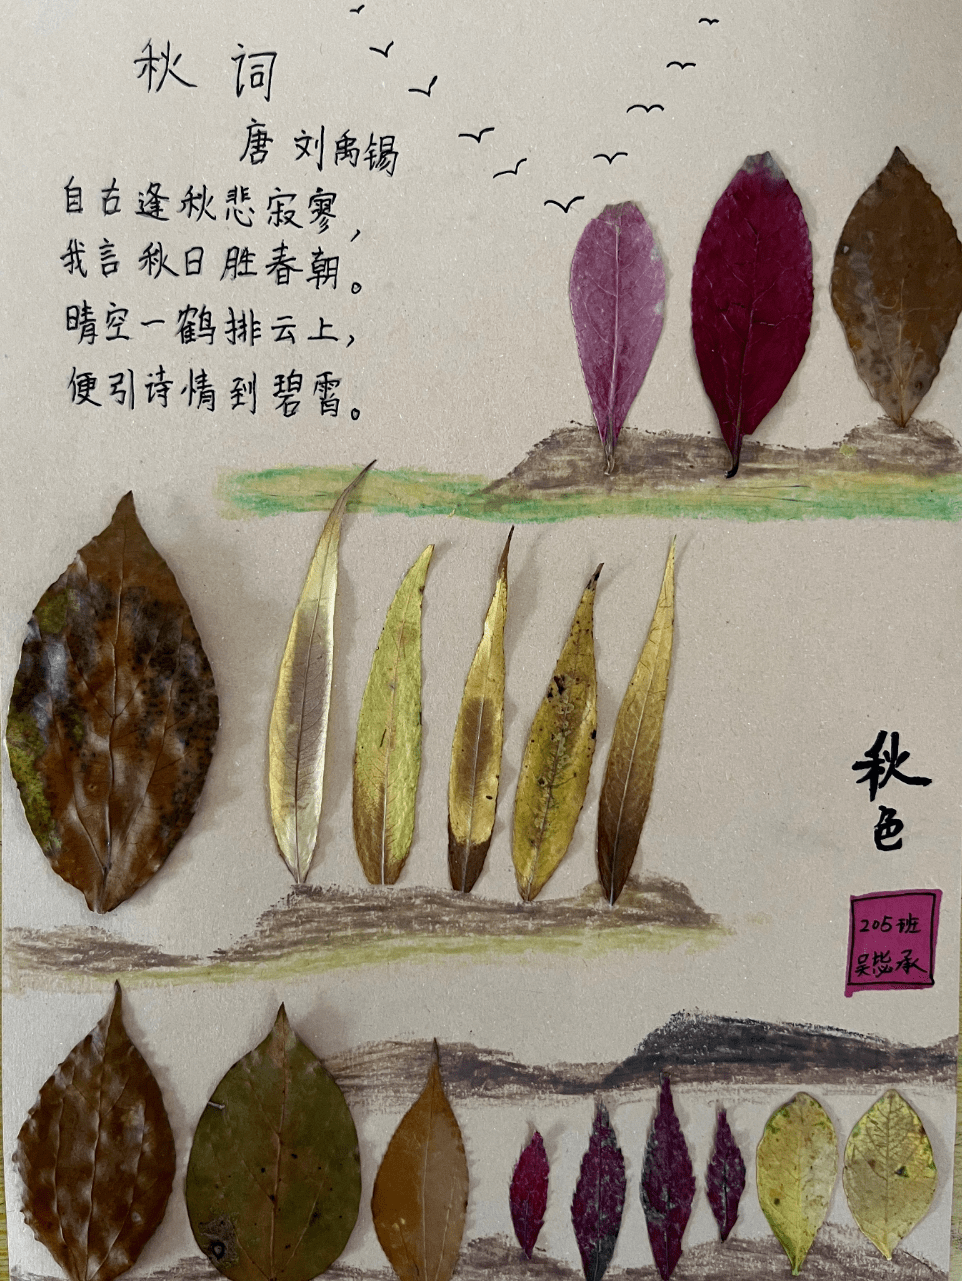 秋词
唐 刘禹锡
自古逢秋悲寂寥，
我言秋日胜春朝。
晴空一鹤排云上，
便引诗情到碧霄。
秋
色
205班
吴毖承